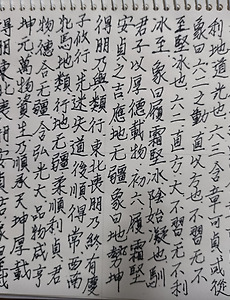 得朋東北喪朋安貞吉彖曰至哉
坤元萬物資生乃順承天坤厚載
物德合无疆含弘光大品物咸亨
牝馬地類行地无疆柔順利貞君
子攸行先迷失道後順得常西南
得朋乃與類行東北喪朋乃終有慶
安貞之吉應地无疆象曰地勢坤
君子以厚德載物初六履霜堅
冰至象曰履霜堅冰陰始凝也馴
至堅冰也六二直方大不習无不利
象曰六二之動直以方也不習无不
利地道光也六三含章可貞或從